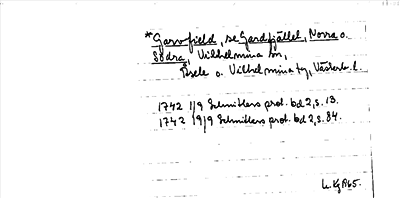 *Garvfield, se Gardfjället, Norra o.
Södra, Vilhelmina sn,
Åsele o. Vilhelmina tg, Västerb. l.
1742 1/9 Schnitlers prot. bd 2, s. 13.
1742 19/9 Schnitlers prot. bd 2, s. 84.
1965.